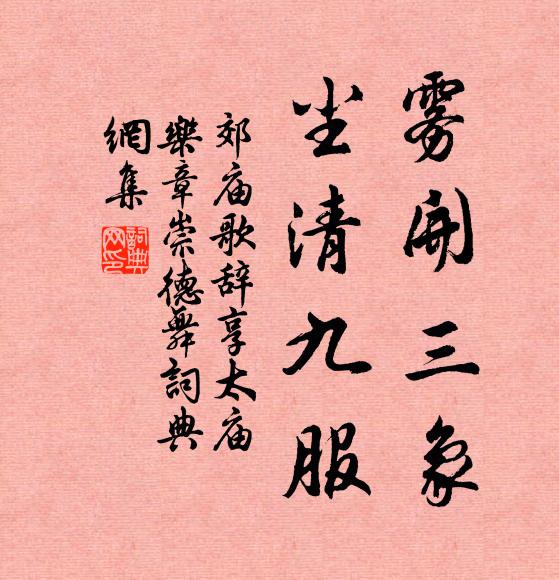 雾开三象
尘清九服
郊庙歌辞享太庙
乐章崇德舞词典
網集
詞典
网印